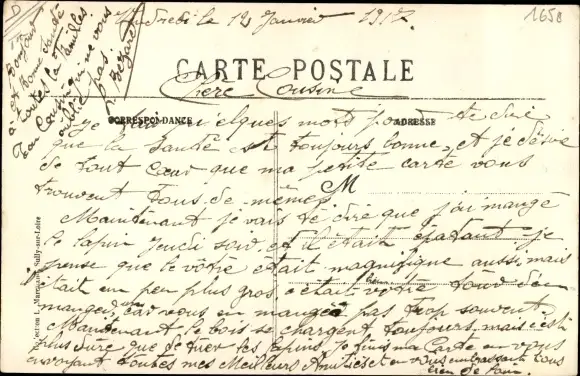 Vendredi le 12 Janvier 1917.
1650
D
CARTE POSTALE
Chère Cousine
CORRESPONDANCE
ADRESSE
Je fais quelques mots pour te dire
que la santé est toujours bonne, et je désire
de tout cœur que ma petite carte vous
trouvent tous de même.
M
Maintenant je vais te dire que j'ai mangé
le lapin Jeudi soir et il était épatant je
pense que le vôtre était magnifique aussi, mais
était un peu plus gros, c'était bien votre tour d'en
manger, car vous en mangez pas trop souvent
Maintenant le bois se chargent toujours, mais c'est
plus dure que de tuer les lapins. Je finis ma Carte en vous
envoyant toutes mes Meilleurs Amitiés et en vous embrassant tous
bien de loin.
Bonjour
et Bonne Santé
à toutes la familles
Ton Cousin qui ne vous
oublie pas.
Sully-sur-Loire